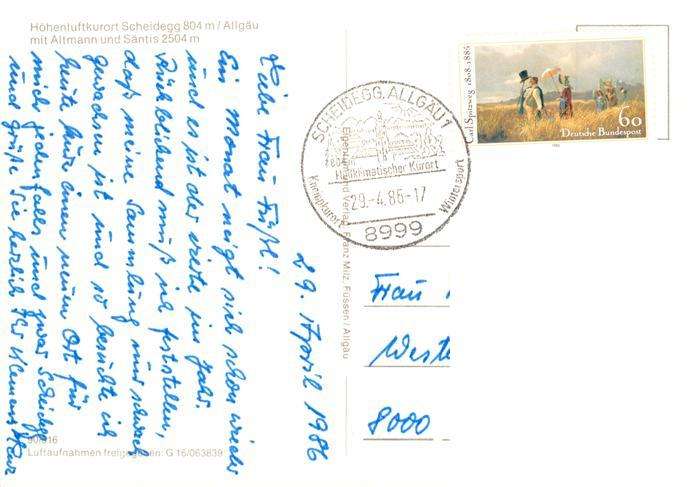 Höhenluftkurort Scheidegg 804 m / Allgäu
mit Altmann und Säntis 2504 m
29. April 1986
Liebe Frau
Ein Monat neigt sich schon wieder
und es ist der vierte im Jahr.
Rückblickend muß ich feststellen,
daß meine Sammlung nur schwach
gewachsen ist und so besuchte ich
heute einen neuen Ort für
mich jedenfalls und zwar Scheidegg
und grüße Sie herzlich Ihr
Luftaufnahmen freigegeben: G 16/063839
Eigentum und Verlag: Franz Milz, Füssen / Allgäu
SCHEIDEGG, ALLGÄU 1
804
Heilklimatischer Kurort
Kneippkurort
Wintersport
29.-4.86-17
8999
Carl Spitzweg 1808-1885
60
Deutsche Bundespost
Frau
Weste
8000